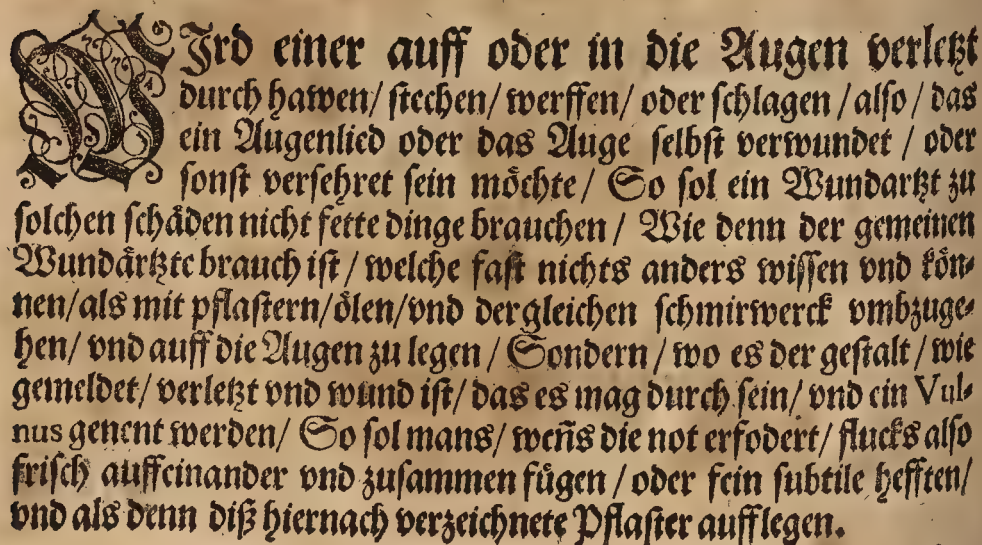 WIrd einer auff oder in die Augen verletzt
durch hawen/ stechen/ werffen/ oder schlagen / also / das
ein Augenlied oder das Auge selbst verwundet / oder
sonst versehret sein möchte / So sol ein Wundartzt zu
solchen schäden nicht fette dinge brauchen / Wie denn der gemeinen
Wundärtzte brauch ist / welche fast nichts anders wissen vnd kön-
nen/ als mit pflastern/ ölen/ vnd dergleichen schmirwerck vmbzuge-
hen/ vnd auff die Augen zu legen / Sondern / wo es der gestalt / wie
gemeldet/ verletzt vnd wund ist/ das es mag durch sein/ vnd ein Vul-
nus genent werden/ So sol mans/ weñs die not erfodert/ flucks also
frisch auffeinander vnd zusammen fügen / oder fein subtile hefften/
vnd als denn diß hiernach verzeichnete Pflaster aufflegen.